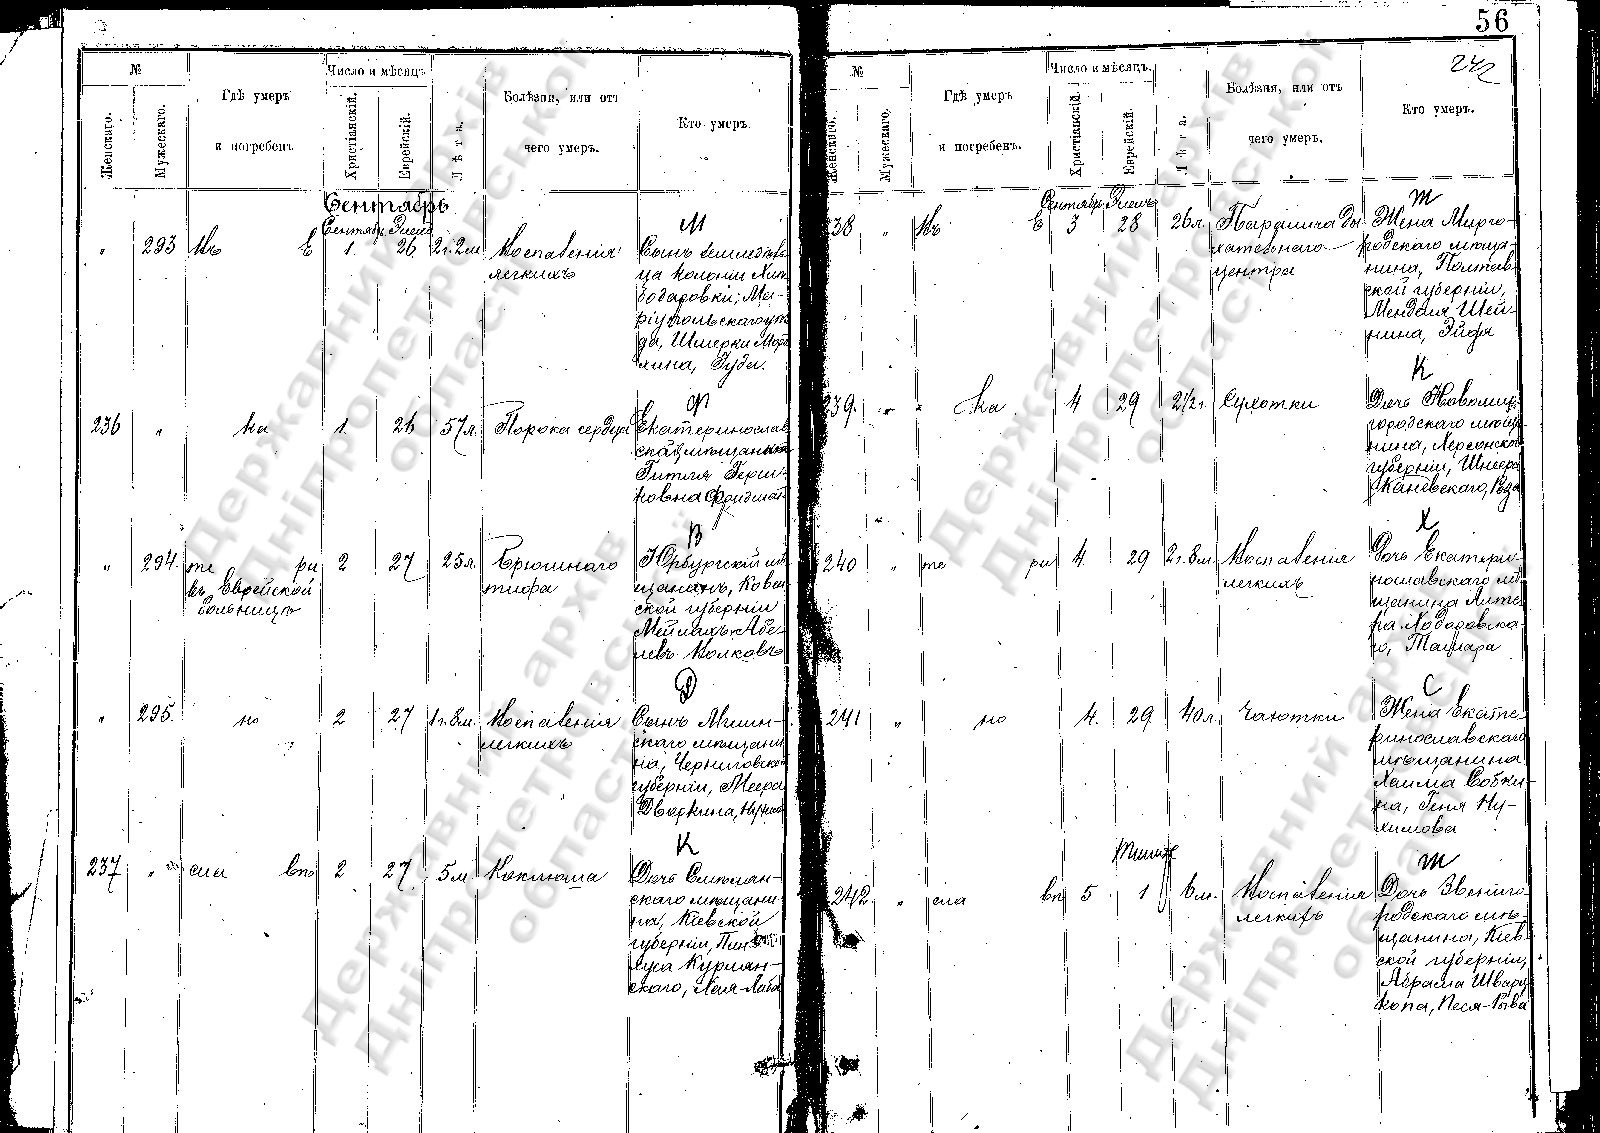 56
242
№
Женскаго.
Мужескаго.
Гдѣ умеръ
и погребенъ
Число и мѣсяцъ
Христіянскій.
Еврейскій.
Лѣта.
Болѣзня, или отъ
чего умеръ.
Кто умеръ.
Сентябрь
Сентябр.
М
" 293 Въ Е 1. 26 2г.2м. Воспаленія
легкихъ
Сынъ
ца колоніи
ріупольскаго уѣз
да, Шмерки
хина, Гуда.
Ф
236 " ка 1. 26 57л. Порока сердца
Екатеринослав
ская мѣщанка
Гитля Герш-
ковна Фридман
В
" 294. те ри 2 27 25л. Брюшнаго
тифа
въ Еврейской
больницѣ
Юрбургскій мѣ
щанинъ, Ковен
ской губерніи
Мейлахъ Абе-
левъ Волковъ
Д
" 295. но 2 27 1г.8м. Воспаленія
легкихъ
Сынъ Мглин-
скаго мѣщани
на, Черниговской
губерніи, Меера
Дворкина,
К
237 " сла впо 2 27 5м Коклюша
Дочь Смѣлян-
скаго мѣщани-
на, Кіевской
губерніи, Пин-
хуса Курлян-
скаго, Лея-Либа
№
Женскаго.
Мужескаго.
Гдѣ умеръ
и погребенъ.
Число и мѣсяцъ.
Христіанскій.
Еврейскій.
Лѣта.
Болѣзня, или отъ
чего умеръ.
Кто умеръ.
Сентябр.
Ш
238 " Въ Е 3 28 26л. Паралича ды
хательнаго
центра
Жена Мирго-
родскаго мѣща-
нина, Полтав
ской губерніи,
Менделя Шей-
нина, Эйдя
К
239. " ка 4 29 2½г. Сухотки
Дочь Новомир
городскаго мѣща
нина, Херсонской
губерніи, Шнеера
Каневскаго, Роза
Х
240 " те ри 4. 29 2г.8м. Воспаленія
легкихъ
Дочь Екатери-
нославскаго мѣ
щанина Алте-
ра Ходоровска-
го, Тамара
С
241 " но 4. 29 40л. Чахотки
Жена Екате-
ринославскаго
мѣщанина
Хаима Собки-
на, Геня Ну-
химова
Тишре
Ш
242. " сла вп 5 1 6м. Воспаленія
легкихъ
Дочь Звениго-
родскаго мѣ-
щанина, Кіев-
ской губерніи,
Абрама Шварц
копа, Песя-Рыва
Державний архів
Дніпропетровської
області